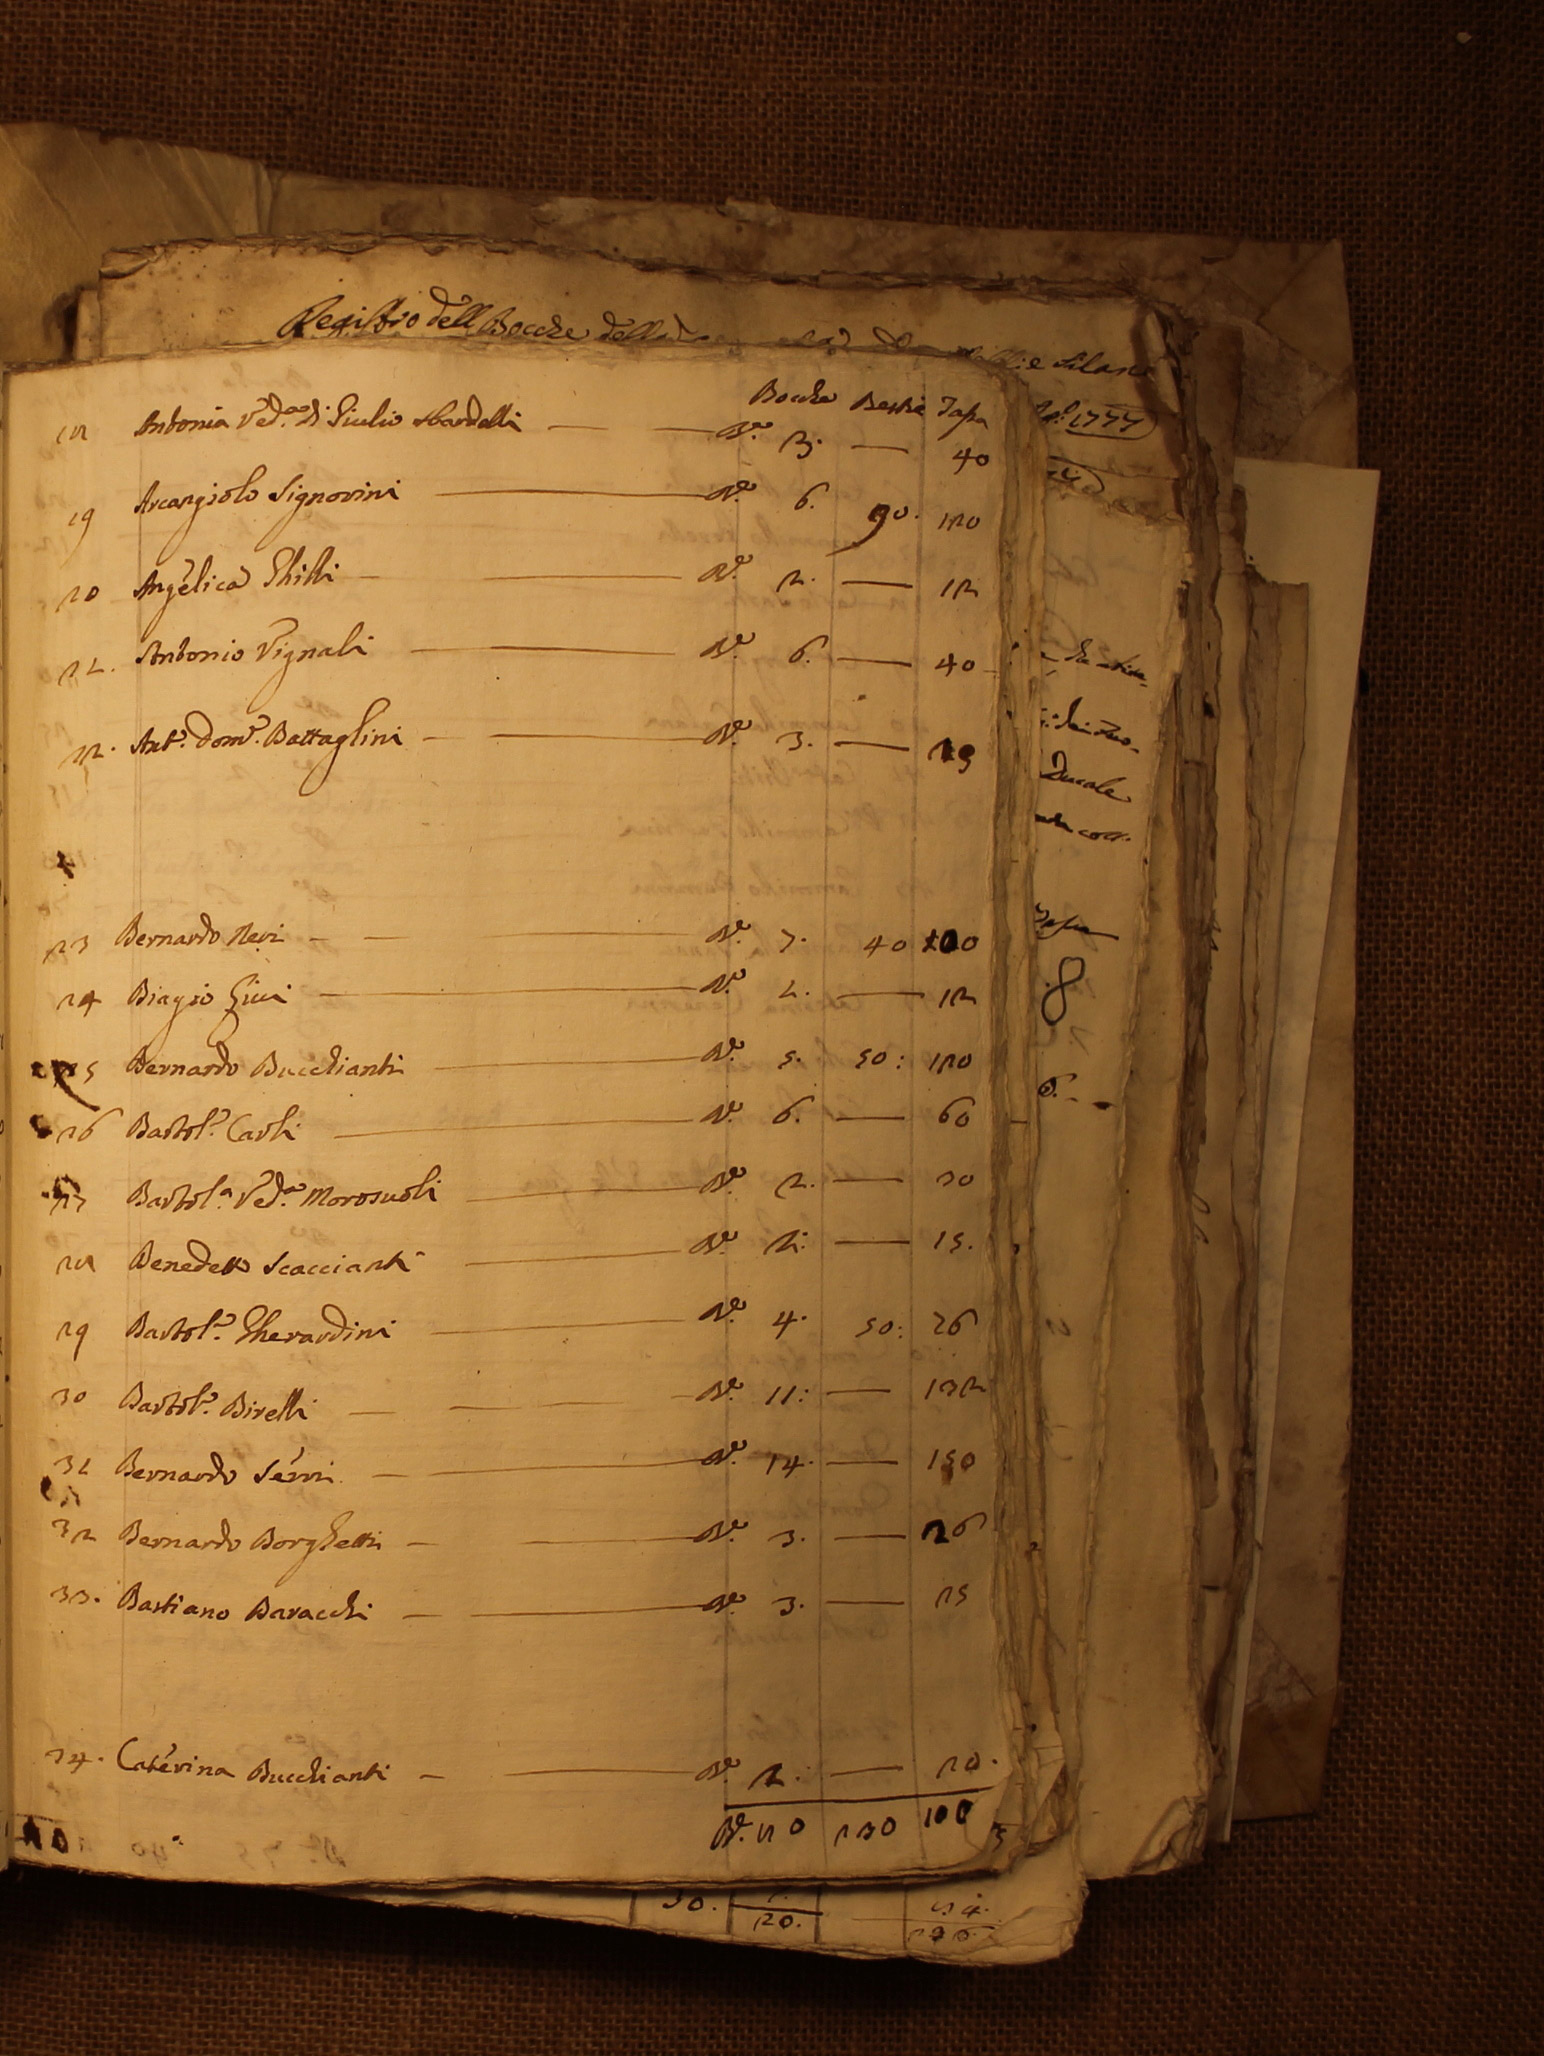 Registro dell Bocche della
Silane
1777
Bocche Bestie Tassa
18 Antonia Ved.a di Giulio Sbardelli N.o 3. — 40
19 Arcangiolo Signorini N.o 6. 90. 120
20 Angelica Ghilli N.o 2. — 12
21. Antonio Vignali N.o 6. — 40
22. Ant.o Dom.o Battaglini N.o 3. — 25
Ducale
23 Bernardo Neri N.o 7. 40 100
Tassa
24 Biagio N.o 2. — 12
8
25 Bernardo Bucchianti N.o 5. 50: 120
26 Bartol.o Carli N.o 6. — 60
6.
27 Bartol.a Ved.a Morosuoli N.o 2. — 30
28 Benedetto Scaccianti N.o 2: — 15.
29 Bartol.o Gherardini N.o 4. 50: 26
30 Bartol.o Birelli N.o 11: — 132
31 Bernardo Serri N.o 14. — 150
32 Bernardo Borghetti N.o 3. — 26
33. Bastiano Baracchi N.o 3. — 25
34. Caterina Bucchianti N.o 2. — 20.
N.o 80 230 100
30. 20.